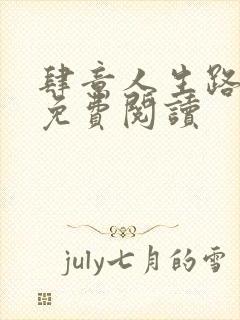 肆意人生路
免費閱讀
july七月的雪